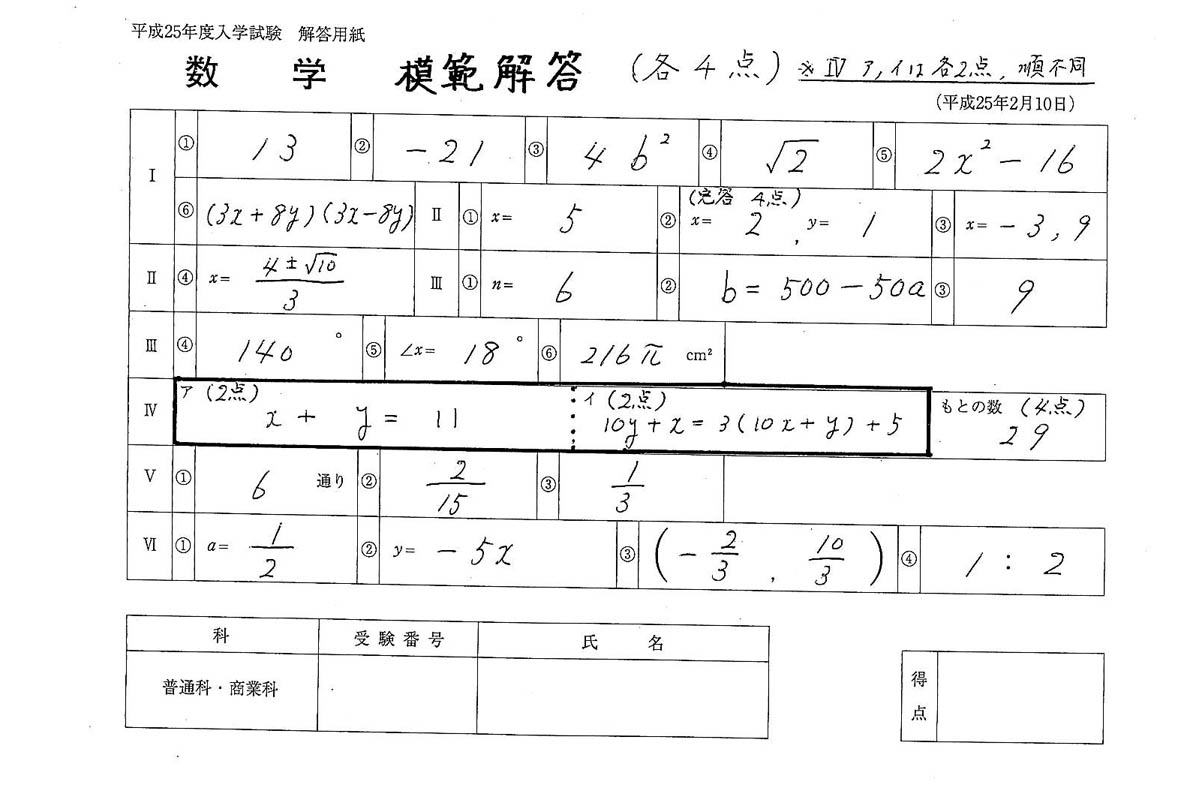 平成25年度入学試験 解答用紙
数 学 模範解答 (各4点) ※Ⅳ ア,イは各2点, 順不同
(平成25年2月10日)
Ⅰ ① 13 ② -21 ③ 4b² ④ √2 ⑤ 2x²-16
⑥ (3x+8y)(3x-8y) Ⅱ ① x= 5 ② (完答 4点) x= 2, y= 1 ③ x= -3, 9
Ⅱ ④ x= (4±√10)/3 Ⅲ ① n= 6 ② b=500-50a ③ 9
Ⅲ ④ 140° ⑤ ∠x= 18° ⑥ 216π cm²
Ⅳ ア(2点) x+y=11 イ(2点) 10y+x=3(10x+y)+5 もとの数 (4点) 29
Ⅴ ① 6 通り ② 2/15 ③ 1/3
Ⅵ ① a= 1/2 ② y= -5x ③ (-2/3, 10/3) ④ 1:2
科 受験番号 氏 名
普通科・商業科
得点